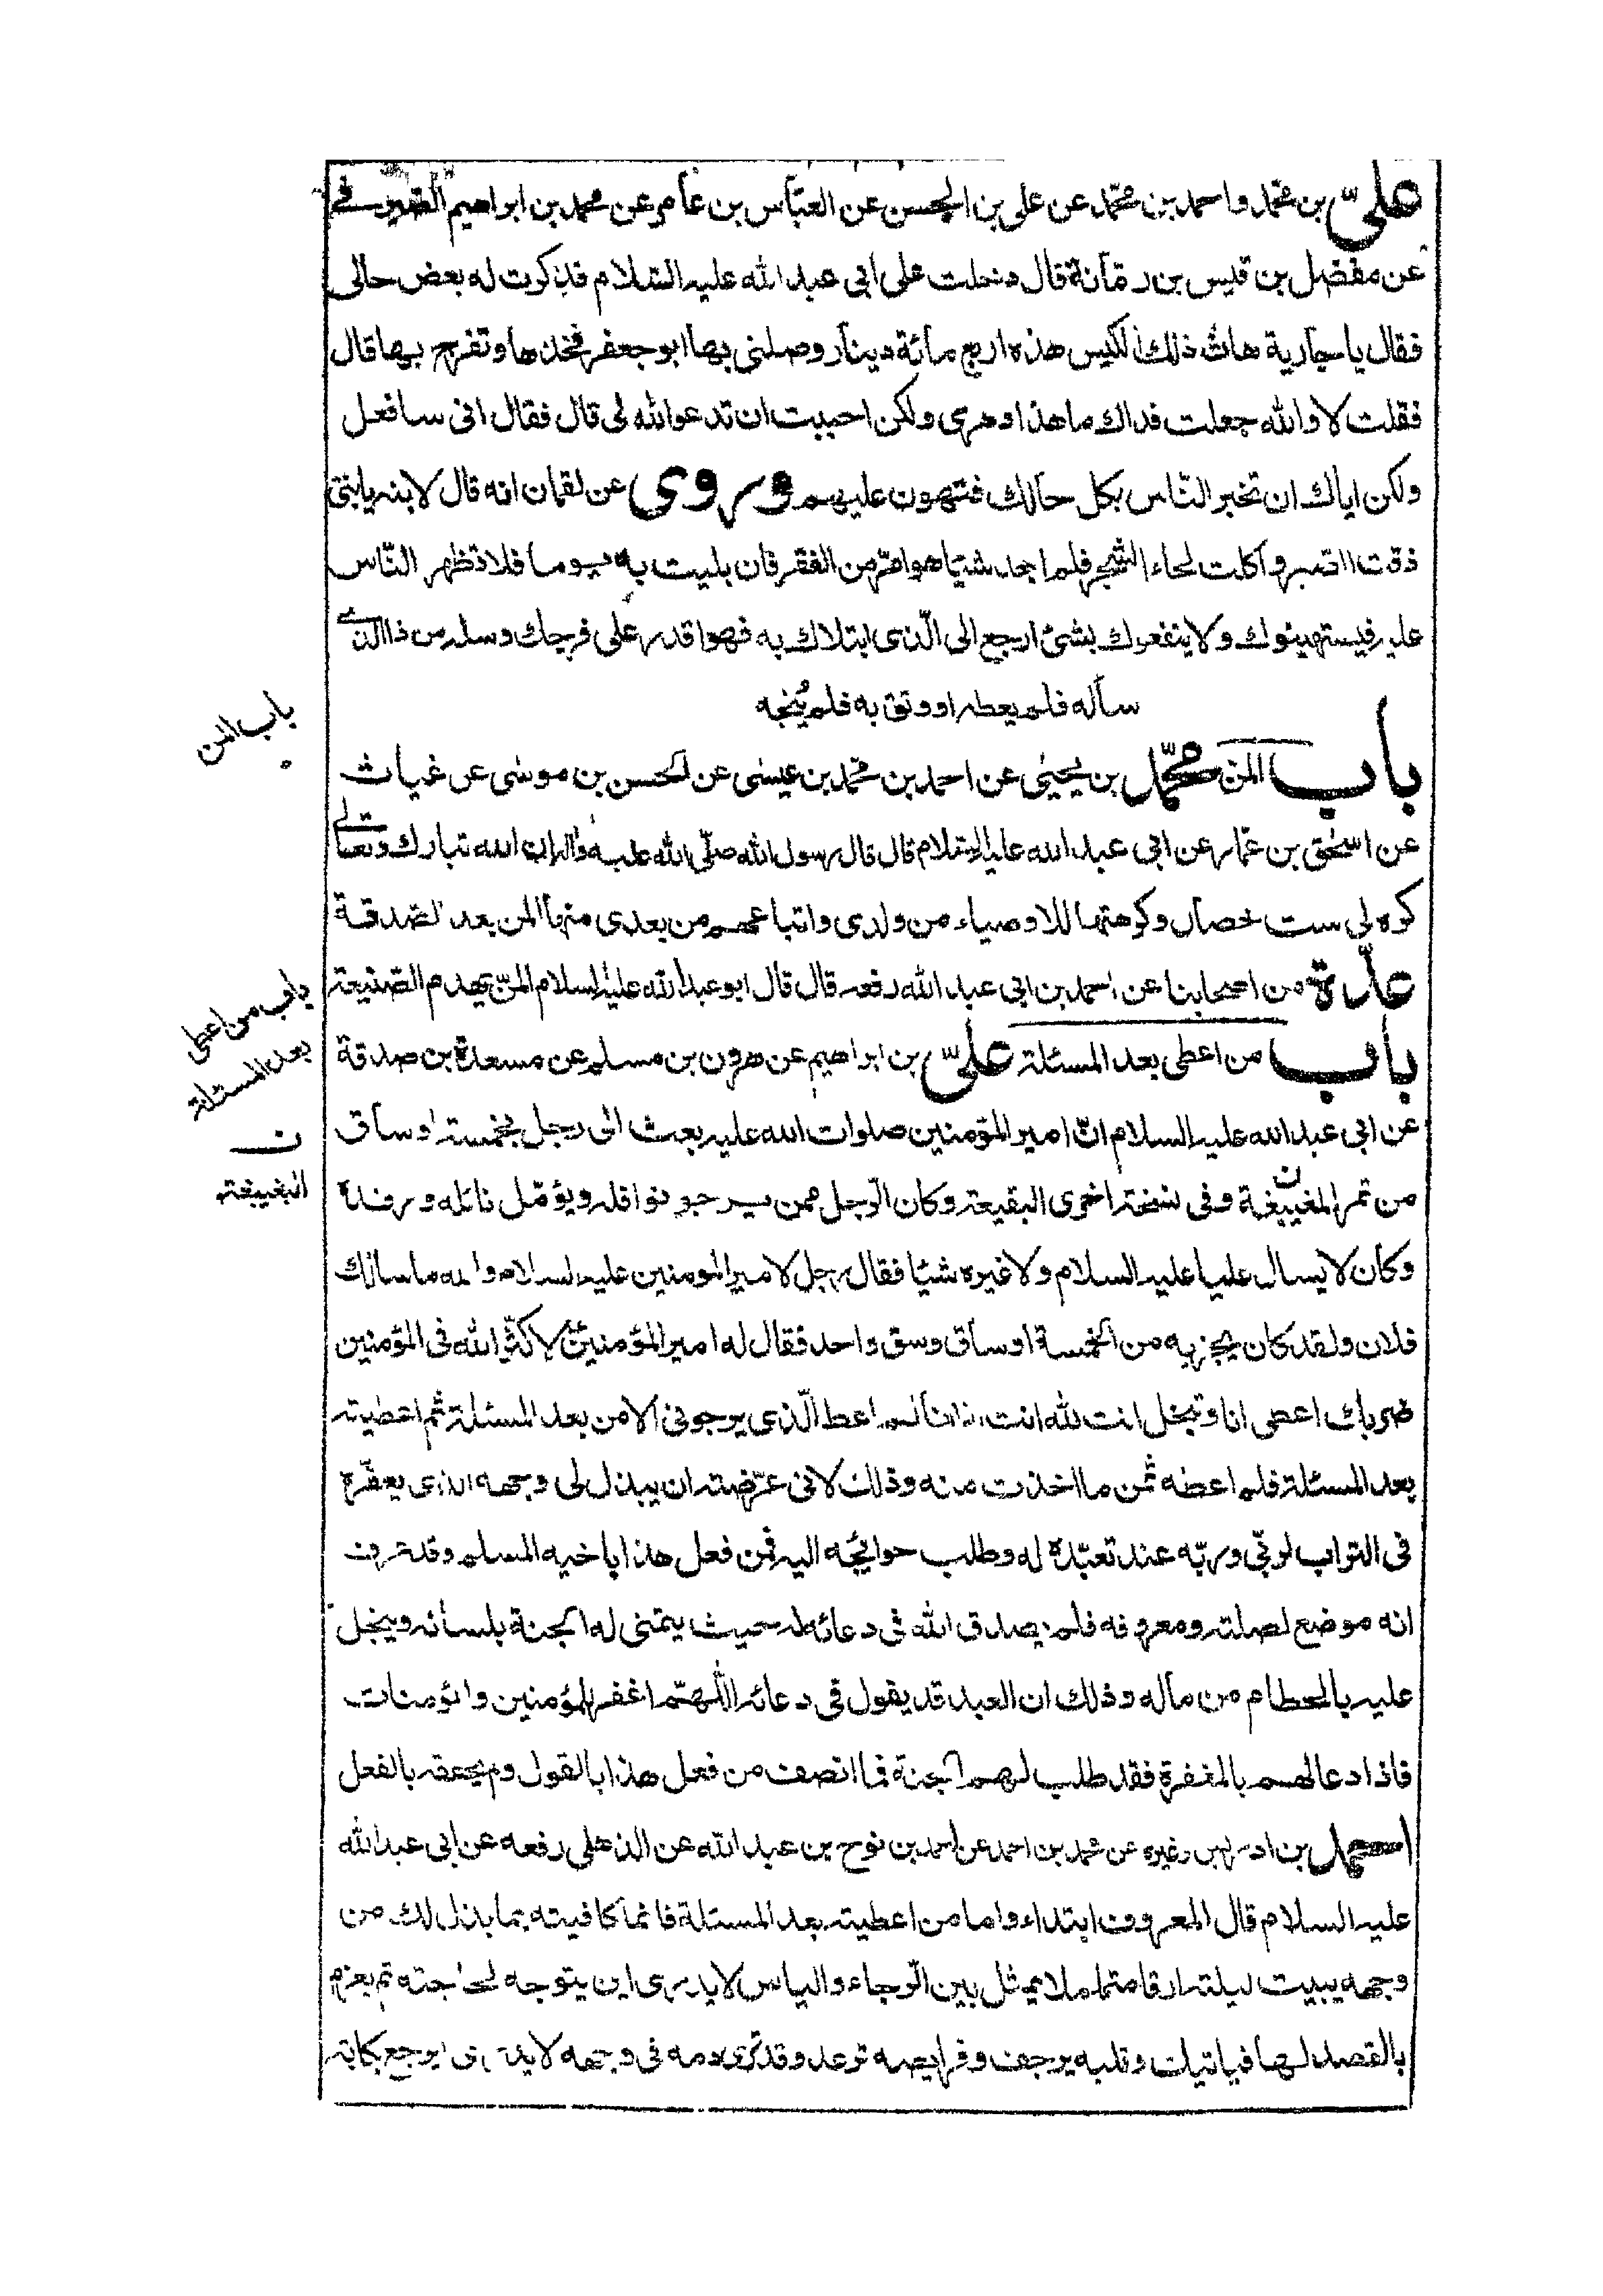 علىّ بن محمد واحمد بن محمّد عن على بن الحسن عن العبّاس بن عامر عن محمد بن ابراهيم الصيرفى
عن مفضل بن قيس بن رمّانة قال دخلت على ابى عبد الله عليه السّلام فذكرت له بعض حالى
فقال يا جارية هات ذلك الكيس هذه اربع مائة دينار وصلنى بها ابو جعفر فخذها وتفرج بها قال
فقلت لا والله جعلت فداك ما هذا دهرى ولكن احببت ان تدعو الله لى قال فقال انى سافعل
ولكن اياك ان تخبر النّاس بكل حالك فتهون عليهم وروى عن لقمان انه قال لابنه يا بنى
ذقت الصبر واكلت لحاء الشّجر فلم اجد شيئا هو امرّ من الفقر فان بليت به يوما فلا تظهر النّاس
عليه فيستهينوك ولا ينفعوك بشئ ارجع الى الّذى ابتلاك به فهو اقدر على فرجك وسله من ذا الذى
سأله فلم يعطه او وثق به فلم يُنجه
باب المن محمّد بن يحيى عن احمد بن محمد بن عيسى عن الحسن بن موسى عن غياث
عن اسحٰق بن عمّار عن ابى عبد الله عليه السّلام قال قال رسول الله صلّى الله عليه واله ان الله تبارك وتعالى
كره لى ست خصال وكرهتها للاوصياء من ولدى واتباعهم من بعدى منها المن بعد الصدقة
عدّة من اصحابنا عن احمد بن ابى عبد الله رفعه قال قال ابو عبد الله عليه السلام المنّ يهدم الصّنيعة
باب من اعطى بعد المسئلة علىّ بن ابراهيم عن هرون بن مسلم عن مسعدة بن صدقة
عن ابى عبد الله عليه السلام انّ امير المؤمنين صلوات الله عليه بعث الى رجل بخمسة اوساق
من تمر المغيبغة وفى نسخة اخرى البقيعة وكان الرّجل ممن يرجو نوافله ويؤمّل نائله ورفده
وكان لا يسال عليا عليه السلام ولا غيره شيئا فقال رجل لامير المؤمنين عليه السلام والله ما سالك
فلان ولقد كان يجزيه من الخمسة اوساق وسق واحد فقال له امير المؤمنين لا كثّر الله فى المؤمنين
ضربك اعطى انا وتبخل انت لله انت اذا انا لم اعط الّذى يرجونى الا من بعد المسئلة ثم اعطيته
بعد المسئلة فلم اعطه ثمن ما اخذت منه وذلك لانى عرّضته ان يبذل لى وجهه الذى يعفّره
فى التراب لربّى وربّه عند تعبّده له وطلب حوائجه اليه فمن فعل هذا باخيه المسلم وقد عرف
انه موضع لصلته ومعروفه فلم يصدق الله فى دعائه له حيث يتمنى له الجنة بلسانه ويبخل
عليه بالحطام من ماله وذلك ان العبد قد يقول فى دعائه اللّهمّ اغفر للمؤمنين والمؤمنات
فاذا دعا لهم بالمغفرة فقد طلب لهم الجنة فما انصف من فعل هذا بالقول ولم يحققه بالفعل
احمد بن ادريس وغيره عن محمد بن احمد عن احمد بن نوح بن عبد الله عن الذهلى رفعه عن ابى عبد الله
عليه السلام قال المعروف ابتداء واما من اعطيته بعد المسئلة فانما كافيته بما بذل لك من
وجهه يبيت ليلته ارقا متململا يمثل بين الرّجاء والياس لا يدرى اين يتوجه لحاجته ثم يعزم
بالقصد لها فياتيك وقلبه يرجف وفرايصه ترعد وقد ترى دمه فى وجهه لا يدرى ايرجع بكابة
باب المن
باب من اعطى
بعد المسئلة
ن
البغيبغة